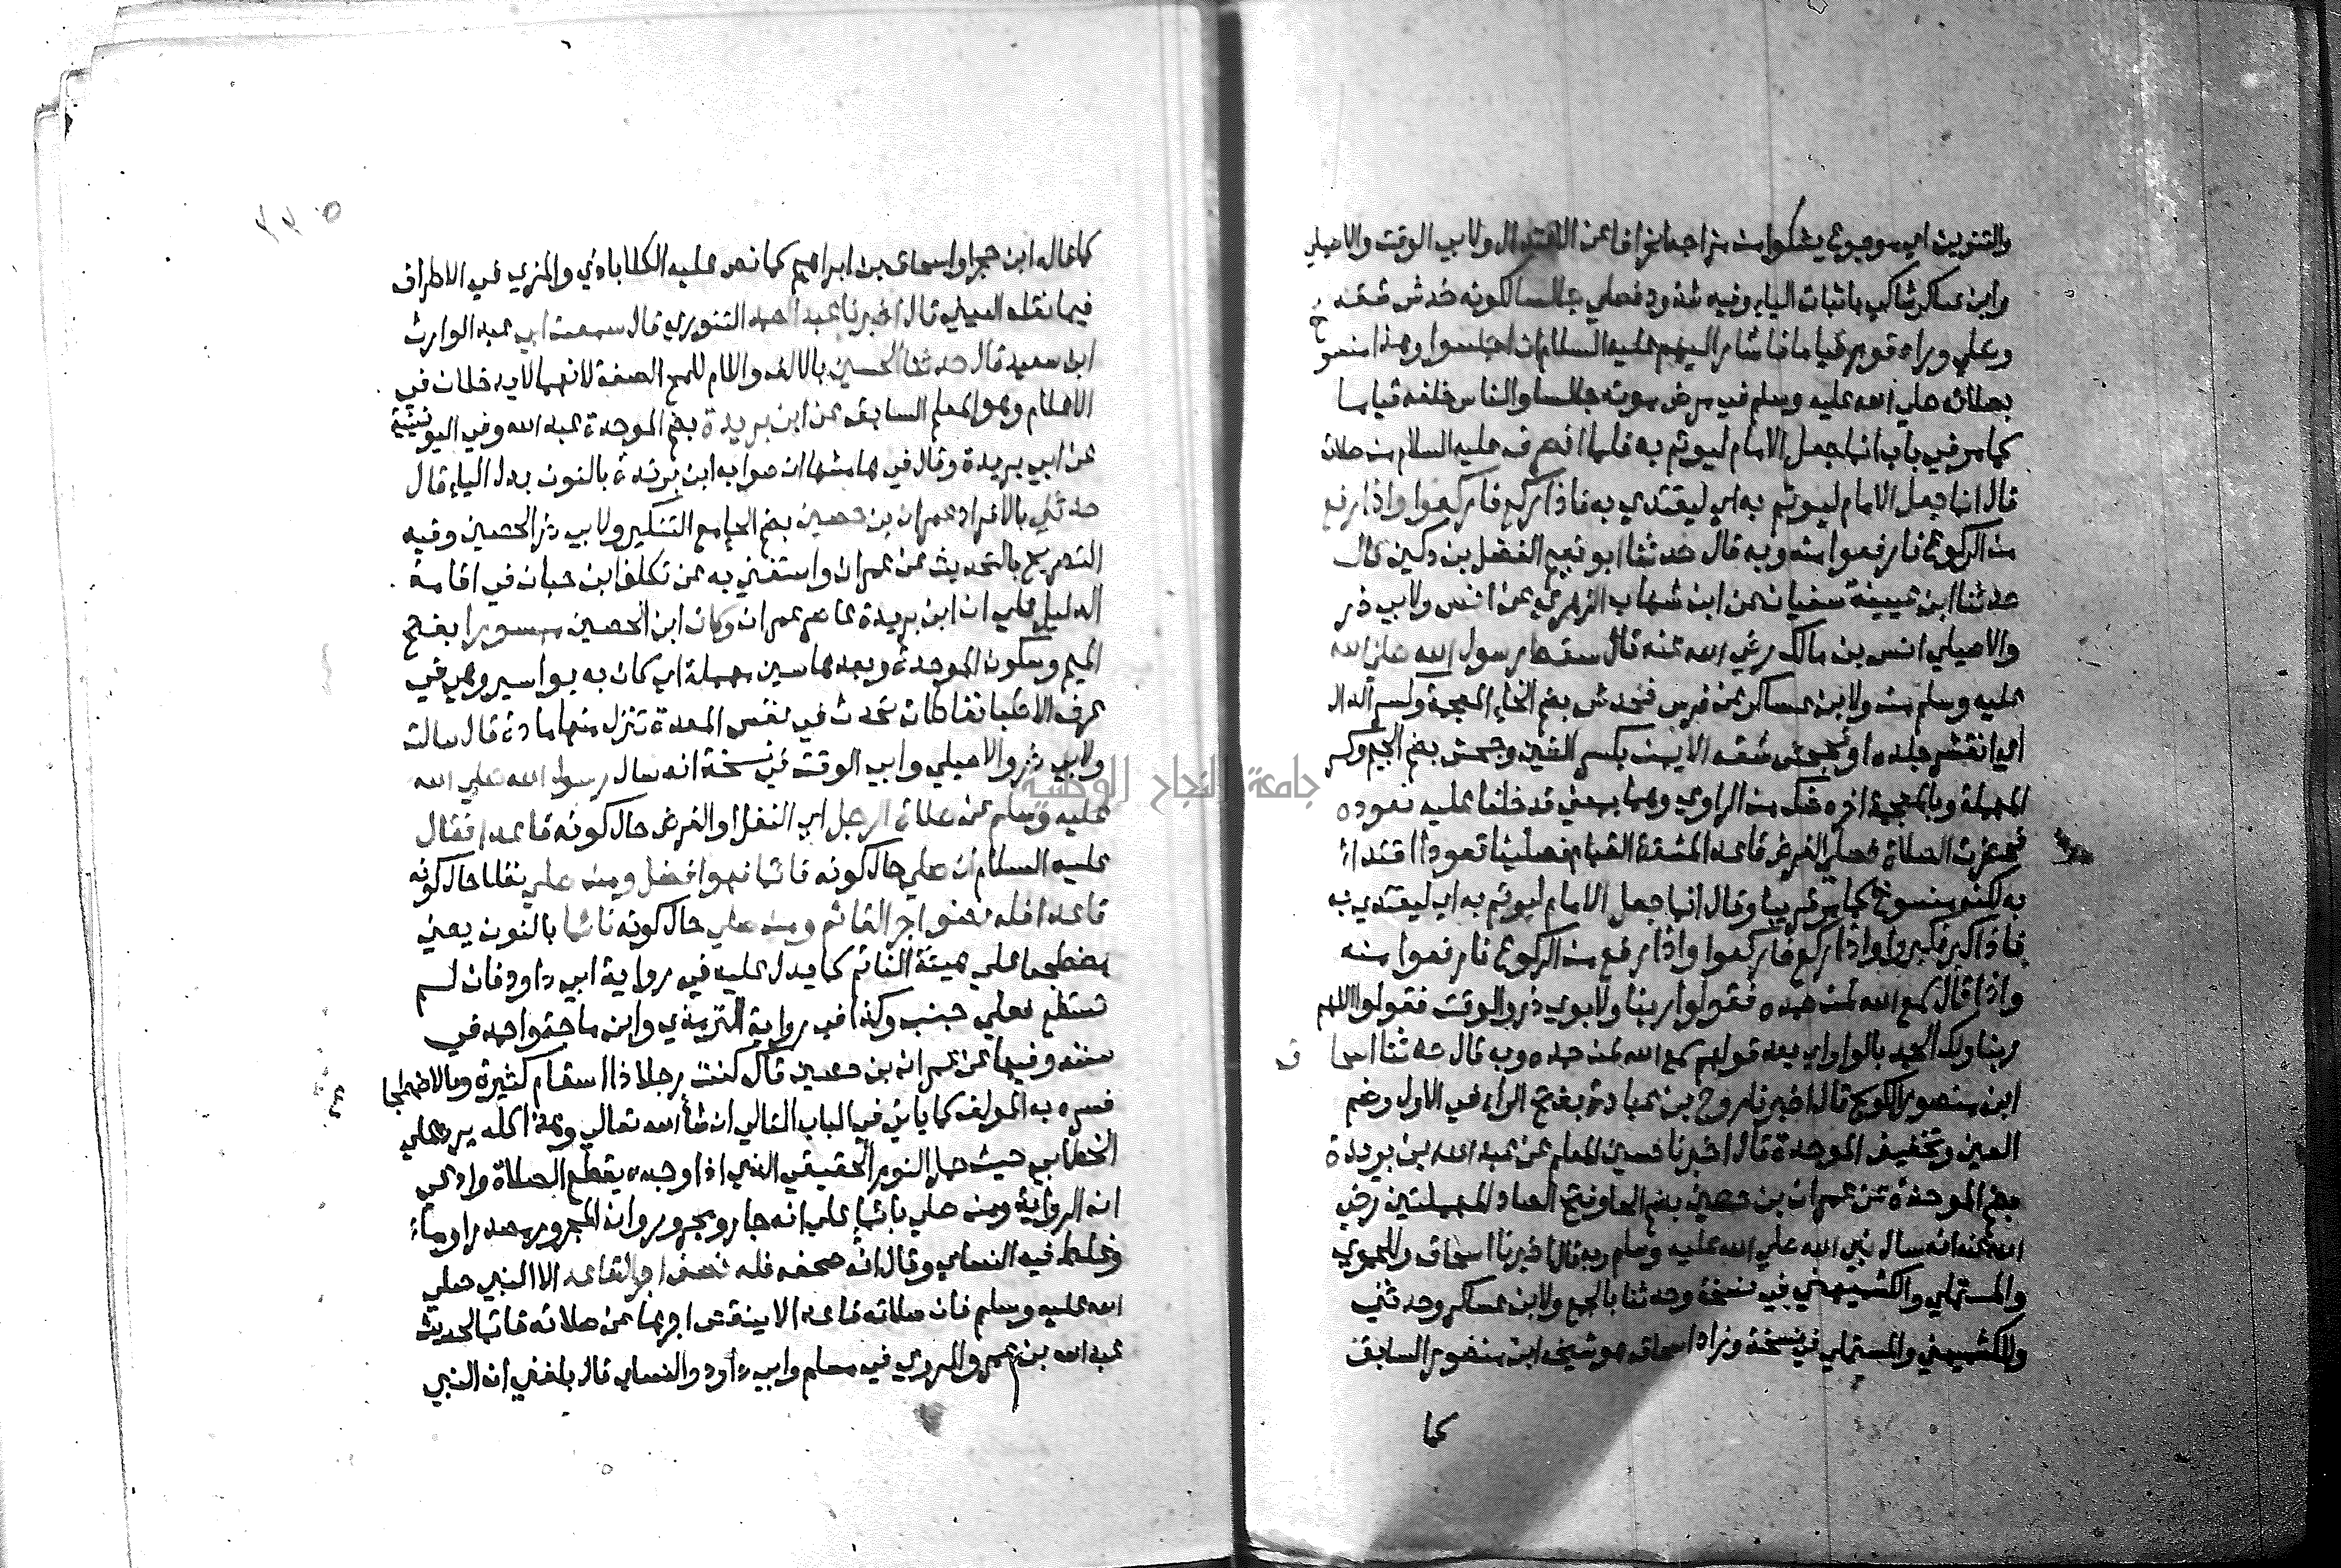 والتنوين اي موجوع يشكو من مزاجه انحرافا عن الاعتدال ولابي الوقت والاصيلي
وابن عساكر شاكي باثبات الياء وفيه شذوذ فصلي جالسا لكونه خدش شقه
وصلي وراه قوم قياما فاشار اليهم عليه السلام ان اجلسوا وهذا منسوخ
بصلاته صلي الله عليه وسلم في مرض موته جالسا والناس خلفه قياما
كما مر في باب انما جعل الامام ليوتم به فلما انصرف عليه السلام من صلاته
قال انما جعل الامام ليوتم به اي ليقتدي به فاذا ركع فاركعوا واذا رفع
من الركوع فارفعوا منه وبه قال حدثنا ابو نعيم الفضل بن دكين قال
حدثنا ابن عيينة سفيان عن ابن شهاب الزهري عن انس ولابي ذر
والاصيلي انس بن مالك رضي الله عنه قال سقط رسول الله صلي الله
عليه وسلم من ولابن عساكر عن فرس فخدش بضم الخاء المعجمة وكسر الدال
اي انقشر جلده او فجحش شقه الايمن بكسر الشين وجحش بضم الجيم وكسر
المهملة وبالمعجمة اخره شك من الراوي وهما بمعني فدخلنا عليه نعوده
فحضرت الصلاة فصلي الفرض قاعدا لمشقة القيام فصلينا قعودا اقتداء
به لكنه منسوخ كما مر قريبا وقال انما جعل الامام ليوتم به اي ليقتدي به
فاذا كبر فكبروا واذا ركع فاركعوا واذا رفع من الركوع فارفعوا منه
واذا قال سمع الله لمن حمده فقولوا ربنا ولابوي ذر والوقت فقولوا اللهم
ربنا ولك الحمد بالواو اي بعد قولهم سمع الله لمن حمده وبه قال حدثنا اسحاق
ابن منصور الكوسج قال اخبرنا روح بن عبادة بفتح الراء في الاول وضم
العين وتخفيف الموحدة قال اخبرنا حسين المعلم عن عبد الله بن بريدة
بضم الموحدة عن عمران بن حصين بضم الحا وفتح الصاد المهملتين رضي
الله عنه انه سال نبي الله صلي الله عليه وسلم وبه قال اخبرنا اسحاق وللحموي
والمستملي والكشميهني في نسخة وحدثنا بالجمع ولابن عساكر وحدثني
وللكشميهني والمستملي في نسخة وزاد اسحاق هو شيخه ابن منصور السابق
كما
٢٢٥
كما قاله ابن حجر او اسحاق بن ابراهيم كما نص عليه الكلاباذي والمزي في الاطراف
فيما نقله العيني قال اخبرنا عبد الصمد التنوري قال سمعت ابي عبد الوارث
ابن سعيد قال حدثنا الحسين بالالف واللام للمح الصفة لانهما لا يدخلان في
الاعلام وهو المعلم السابق عن ابن بريدة بضم الموحدة عبد الله وفي اليونينية
عن ابي بريدة وقال في هامشها ان صوابه ابن بريدة بالنون بدل الياء قال
حدثني بالافراد عمران بن حصين بضم الحاء مع التنكير ولابي ذر الحصين وفيه
التصريح بالتحديث عن عمران واستغني به عن تكلف ابن حبان في اقامة
الدليل علي ان ابن بريدة عاصر عمران وكان ابن الحصين مبسورا بفتح
الميم وسكون الموحدة وبعدها سين مهملة اي كان به بواسير وهي في
عرف الاطبا نفاطات تحدث في نفس المعدة تنزل منها مادة قال سالت
ولابي ذر والاصيلي وابي الوقت في نسخة انه سال رسول الله صلي الله
عليه وسلم عن صلاة الرجل اي النفل او الفرض حال كونه قاعدا فقال
عليه السلام ان صلي حال كونه قائما فهو افضل ومن صلي نفلا حال كونه
قاعدا فله نصف اجر القائم ومن صلي حال كونه نائما بالنون يعني
مضطجعا علي هيئة النائم كما يدل عليه في رواية ابي داود فان لم
تستطع فعلي جنب وكذا في رواية الترمذي وابن ماجة واحمد في
سننه وفيها عن عمران بن حصين قال كنت رجلا ذا اسقام كثيرة وبالاضطجاع
فسره به المولف كما ياتي في الباب التالي ان شاء الله تعالي وهذا كله يرد علي
الخطابي حيث حمل النوم الحقيقي الذي اذا وجده يقطع الصلاة وادعي
ان الرواية ومن صلي بائما علي انه جار ومجرور وان المجرور مصدر اوماء
وغلط فيه النساي وقال انه صحفه فله نصف اجر القاعد الا النبي صلي
الله عليه وسلم فان صلاته قاعدا لا ينقص اجرها عن صلاته قائما لحديث
عبد الله بن عمرو المروي في مسلم وابي داود والنساي قال بلغني ان النبي
جامعة النجاح الوطنية